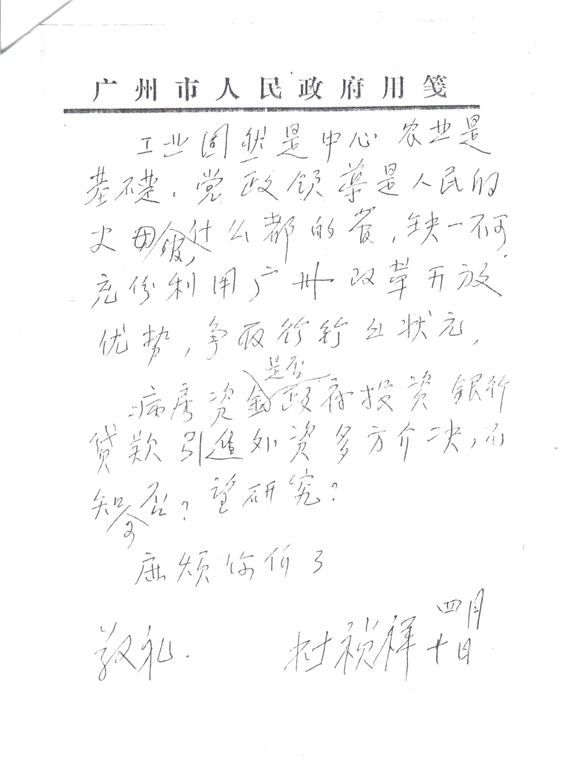 广州市人民政府用笺
工业固然是中心 农业是
基礎. 党政领导是人民的
父母官, 什么都的管, 缺一不可
充份利用广州改革开放
优势, 争取行行出状元,
是否
病房资金政府投资 银行
贷款 引进外资多方介决, 不
知可否? 望研究?
麻烦你们了
敬礼.
林祯祥
四月
十日